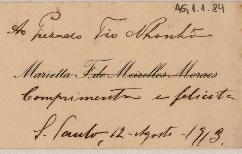 AG.1.1.84
Ao Presado Tio Nhonhô
Marietta F. de Meirelles Moraes
Comprimenta e felicita
S. Paulo, 12 - Agosto - 1913.